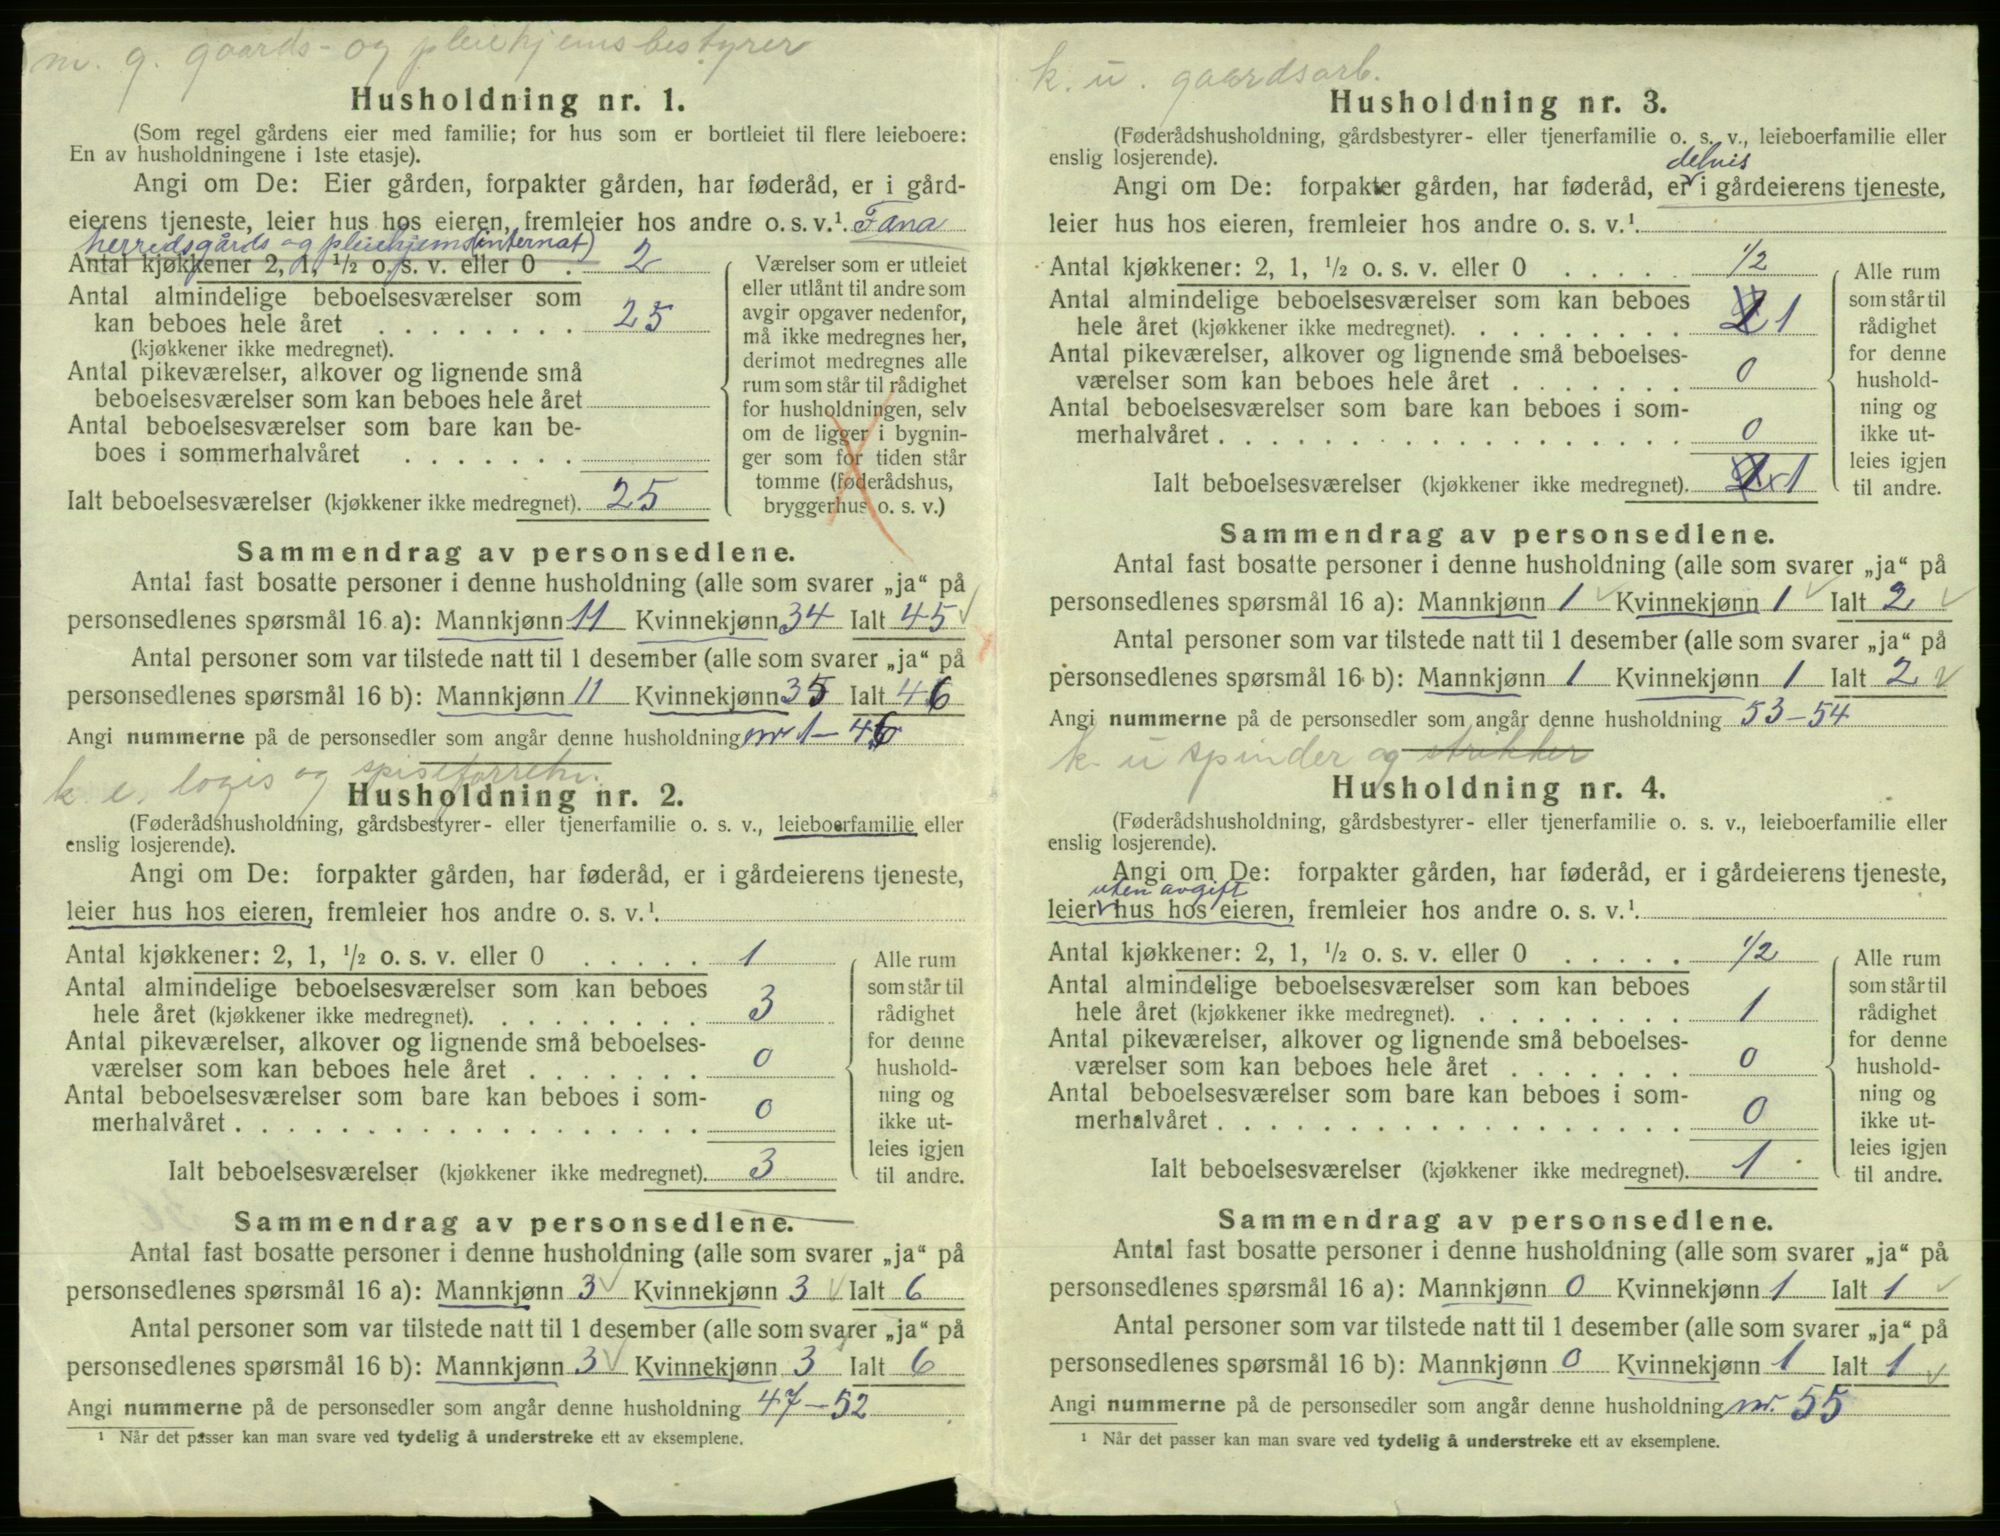 m. g. gaards- og pleiehjemsbestyrer
Husholdning nr. 1.
(Som regel gårdens eier med familie; for hus som er bortleiet til flere leieboere:
En av husholdningene i 1ste etasje).
Angi om De: Eier gården, forpakter gården, har føderåd, er i gård-
eierens tjeneste, leier hus hos eieren, fremleier hos andre o. s. v.¹. Fana
herredsgårds og pleiehjem (internat)
Antal kjøkkener 2, 1, ½ o. s. v. eller 0 . 2
Antal almindelige beboelsesværelser som
kan beboes hele året . . . . . . . . 25
(kjøkkener ikke medregnet).
Antal pikeværelser, alkover og lignende små
beboelsesværelser som kan beboes hele året
Antal beboelsesværelser som bare kan be-
boes i sommerhalvåret . . . . . . .
Ialt beboelsesværelser (kjøkkener ikke medregnet). 25
Værelser som er utleiet
eller utlånt til andre som
avgir opgaver nedenfor,
må ikke medregnes her,
derimot medregnes alle
rum som står til rådighet
for husholdningen, selv
om de ligger i bygnin-
ger som for tiden står
tomme (føderådshus,
bryggerhus o. s. v.)
Sammendrag av personsedlene.
Antal fast bosatte personer i denne husholdning (alle som svarer „ja“ på
personsedlenes spørsmål 16 a): Mannkjønn 11 Kvinnekjønn 34 Ialt 45
Antal personer som var tilstede natt til 1 desember (alle som svarer „ja“ på
personsedlenes spørsmål 16 b): Mannkjønn 11 Kvinnekjønn 35 Ialt 46
Angi nummerne på de personsedler som angår denne husholdning nr 1 – 46
k. e. logis og spiseforretn.
Husholdning nr. 2.
(Føderådshusholdning, gårdsbestyrer- eller tjenerfamilie o. s. v., leieboerfamilie eller
enslig losjerende).
Angi om De: forpakter gården, har føderåd, er i gårdeierens tjeneste,
leier hus hos eieren, fremleier hos andre o. s. v.¹.
Antal kjøkkener: 2, 1, ½ o. s. v. eller 0 . . . . . 1
Antal almindelige beboelsesværelser som kan beboes
hele året (kjøkkener ikke medregnet). . . . . . . . . 3
Antal pikeværelser, alkover og lignende små beboelses-
værelser som kan beboes hele året . . . . . . . 0
Antal beboelsesværelser som bare kan beboes i som-
merhalvåret . . . . . . . . . . . . . . . . . . 0
Ialt beboelsesværelser (kjøkkener ikke medregnet). 3
Alle rum
som står til
rådighet
for denne
hushold-
ning og
ikke ut-
leies igjen
til andre.
Sammendrag av personsedlene.
Antal fast bosatte personer i denne husholdning (alle som svarer „ja“ på
personsedlenes spørsmål 16 a): Mannkjønn 3 Kvinnekjønn 3 Ialt 6
Antal personer som var tilstede natt til 1 desember (alle som svarer „ja“ på
personsedlenes spørsmål 16 b): Mannkjønn 3 Kvinnekjønn 3 Ialt 6
Angi nummerne på de personsedler som angår denne husholdning 47 – 52
¹ Når det passer kan man svare ved tydelig å understreke ett av eksemplene.
k. u. gaardsarb.
Husholdning nr. 3.
(Føderådshusholdning, gårdsbestyrer- eller tjenerfamilie o. s. v., leieboerfamilie eller
enslig losjerende).
delvis
Angi om De: forpakter gården, har føderåd, er i gårdeierens tjeneste,
leier hus hos eieren, fremleier hos andre o. s. v.¹.
Antal kjøkkener: 2, 1, ½ o. s. v. eller 0 . . . . . 1/2
Antal almindelige beboelsesværelser som kan beboes
hele året (kjøkkener ikke medregnet). . . . . . . . . 1
Antal pikeværelser, alkover og lignende små beboelses-
værelser som kan beboes hele året . . . . . . . 0
Antal beboelsesværelser som bare kan beboes i som-
merhalvåret . . . . . . . . . . . . . . . . . . 0
Ialt beboelsesværelser (kjøkkener ikke medregnet). 1
Alle rum
som står til
rådighet
for denne
hushold-
ning og
ikke ut-
leies igjen
til andre.
Sammendrag av personsedlene.
Antal fast bosatte personer i denne husholdning (alle som svarer „ja“ på
personsedlenes spørsmål 16 a): Mannkjønn 1 Kvinnekjønn 1 Ialt 2
Antal personer som var tilstede natt til 1 desember (alle som svarer „ja“ på
personsedlenes spørsmål 16 b): Mannkjønn 1 Kvinnekjønn 1 Ialt 2
Angi nummerne på de personsedler som angår denne husholdning 53 – 54
k. u spinder og strikker
Husholdning nr. 4.
(Føderådshusholdning, gårdsbestyrer- eller tjenerfamilie o. s. v., leieboerfamilie eller
enslig losjerende).
Angi om De: forpakter gården, har føderåd, er i gårdeierens tjeneste,
uten avgift
leier hus hos eieren, fremleier hos andre o. s. v.¹.
Antal kjøkkener: 2, 1, ½ o. s. v. eller 0 . . . . . 1/2
Antal almindelige beboelsesværelser som kan beboes
hele året (kjøkkener ikke medregnet). . . . . . . . . 1
Antal pikeværelser, alkover og lignende små beboelses-
værelser som kan beboes hele året . . . . . . . 0
Antal beboelsesværelser som bare kan beboes i som-
merhalvåret . . . . . . . . . . . . . . . . . . 0
Ialt beboelsesværelser (kjøkkener ikke medregnet). 1
Alle rum
som står til
rådighet
for denne
hushold-
ning og
ikke ut-
leies igjen
til andre.
Sammendrag av personsedlene.
Antal fast bosatte personer i denne husholdning (alle som svarer „ja“ på
personsedlenes spørsmål 16 a): Mannkjønn 0 Kvinnekjønn 1 Ialt 1
Antal personer som var tilstede natt til 1 desember (alle som svarer „ja“ på
personsedlenes spørsmål 16 b): Mannkjønn 0 Kvinnekjønn 1 Ialt 1
Angi nummerne på de personsedler som angår denne husholdning nr. 55
¹ Når det passer kan man svare ved tydelig å understreke ett av eksemplene.